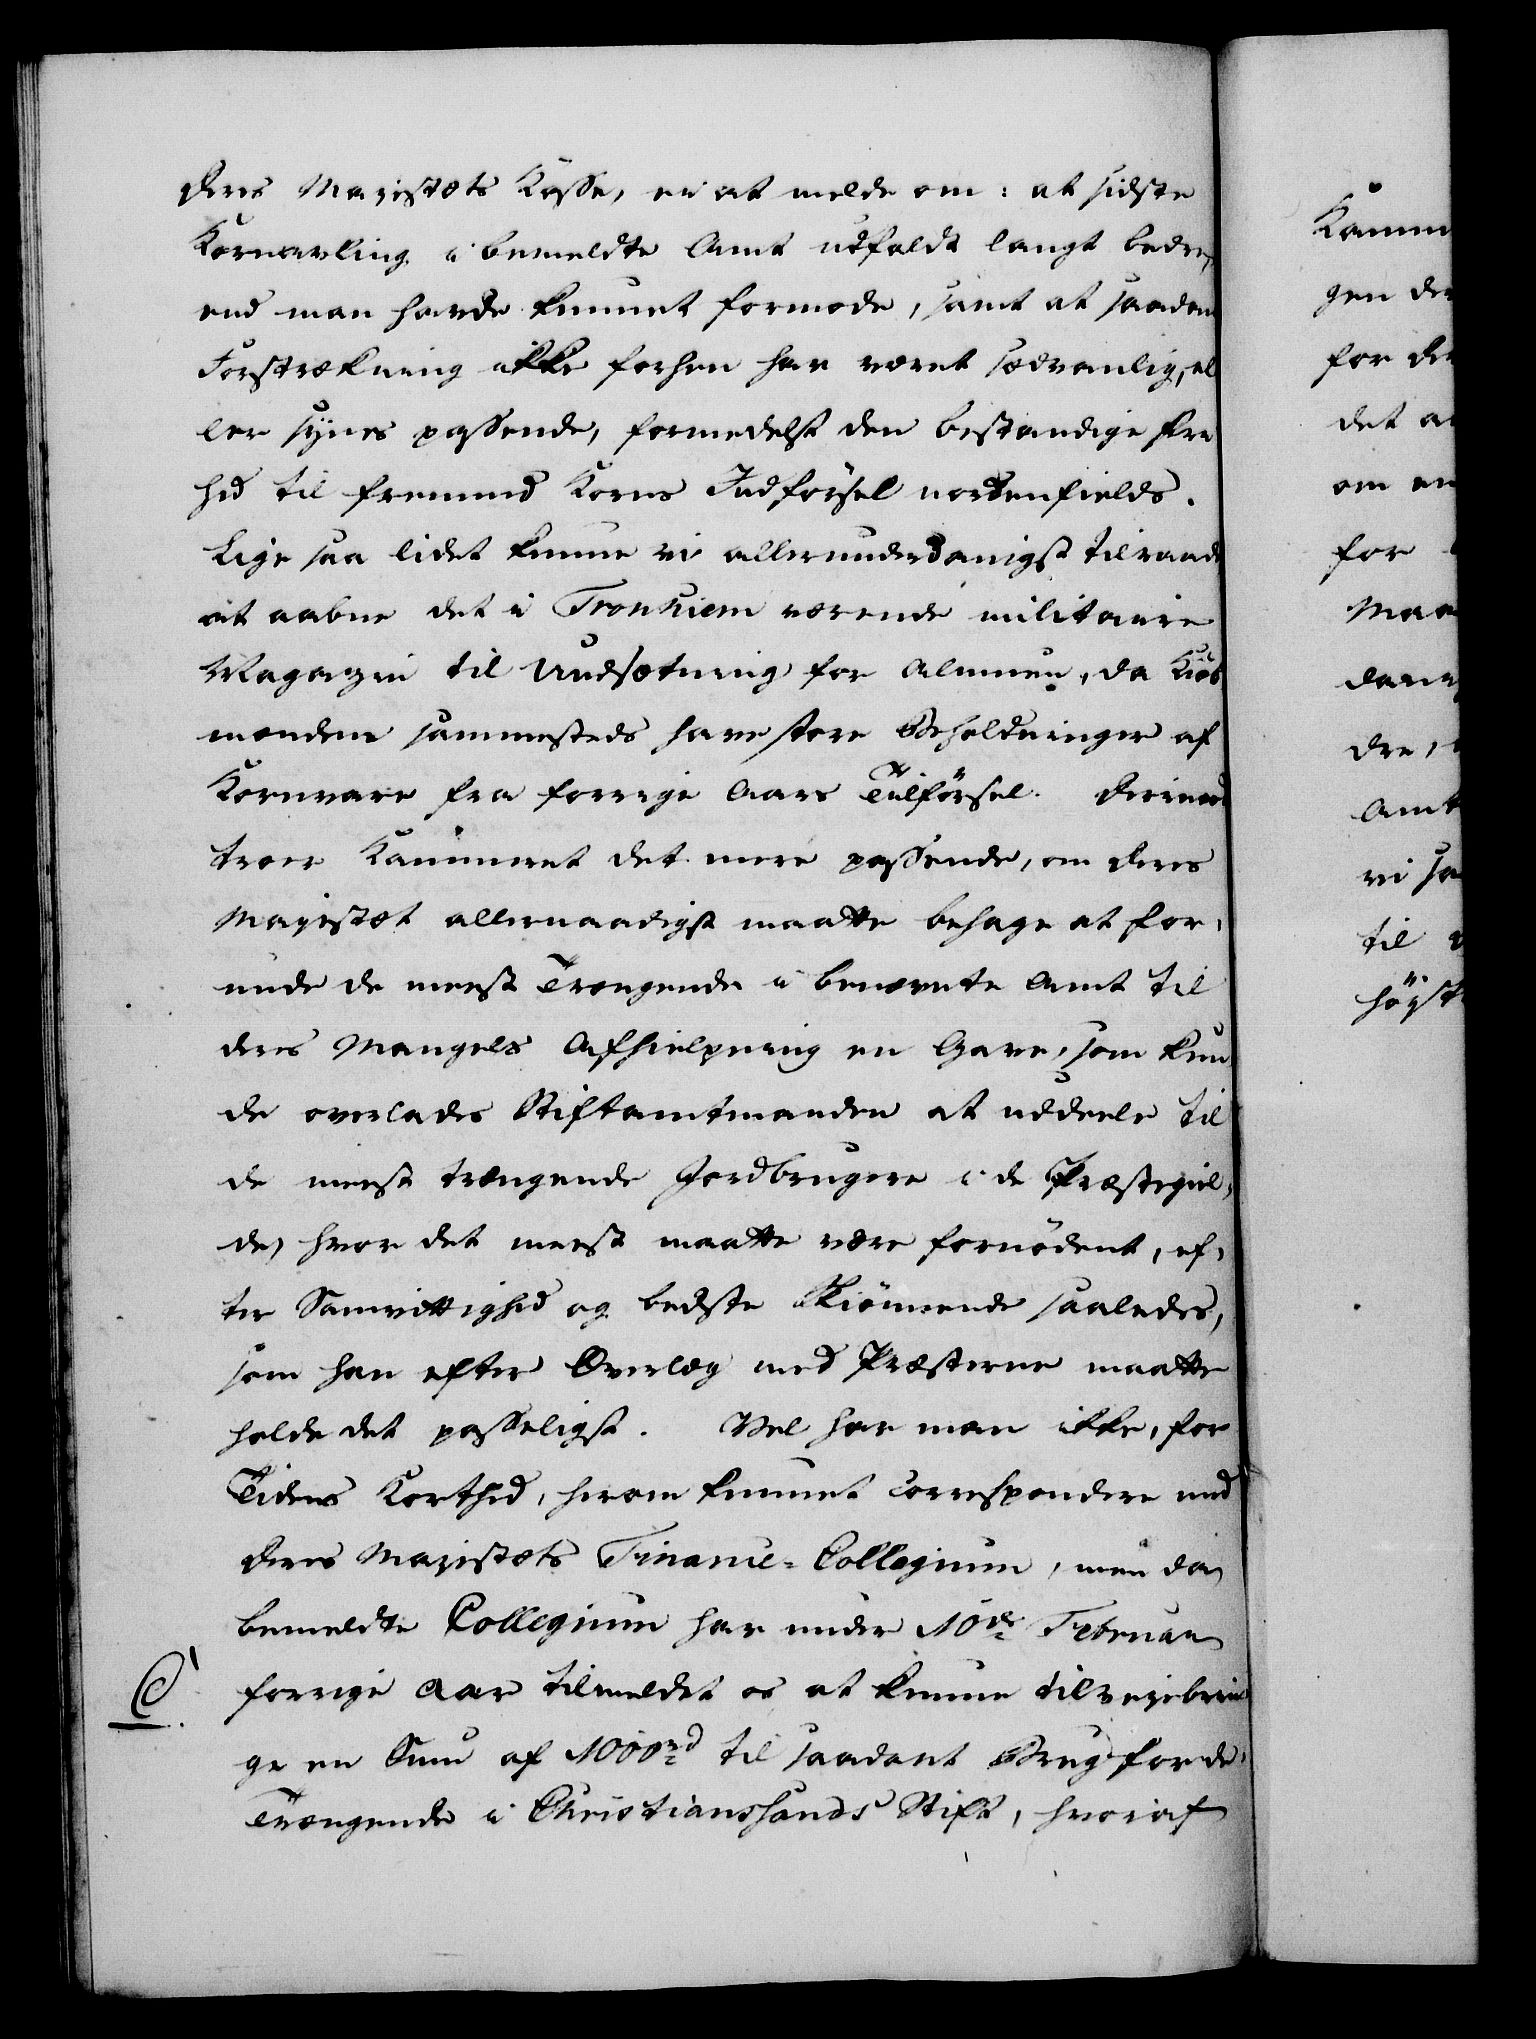 Deres Majestæts Kasse, ei at melde om: at sidste
Kornavling i bemeldte Amt udfaldt langt bedre,
end man havde kunnet formode, samt at saadan
Forstrækning ikke forhen har været sædvanlig, el
ler synes passende, formedelst den bestandige Fri
hed til fremmed Korns Indförsel nordenfields.
Lige saa lidet kunne vi allerunderdanigst tilraade
at aabne det i Tronhiem værende militaire
Magazin til Uudsætning for Almuen, da Kiöb
mændene sammesteds have store Beholdninger af
Kornvare fra forrige Aars Tilförsel. Derimod
troer Kammeret det mere passende, om Deres
Majestæt allernaadigst maatte behage at for,
unde de meest Trængende i benævnte Amt til
deres Mangels Afhielpning en Gave, som kun
de overlades Stiftamtmanden at uddeele til
de meest trængende Jordbrugere i de Præstegiel,
de, hvor det meest maatte være fornödent, ef,
ter Samvittighed og bedste Skiönnende saaledes,
som han efter Overlæg med Præsterne maatte
holde det passeligst. Vel har man ikke, for
Tidens Korthed, herom kunnet correspondere med
Deres Majestæts Finance-Collegium, men da
bemeldte Collegium har under 10de Februar
C
forrige Aar tilmeldet os at kunne tilvejebrin
ge en Sum af 1000rd til saadant Brug for de
Trængende i Christianssands Stift, hvoraf
Kamm
gen de
for de
det a
om en
for
Maa
dan
dre,
Amt
vi sa
til
höyst